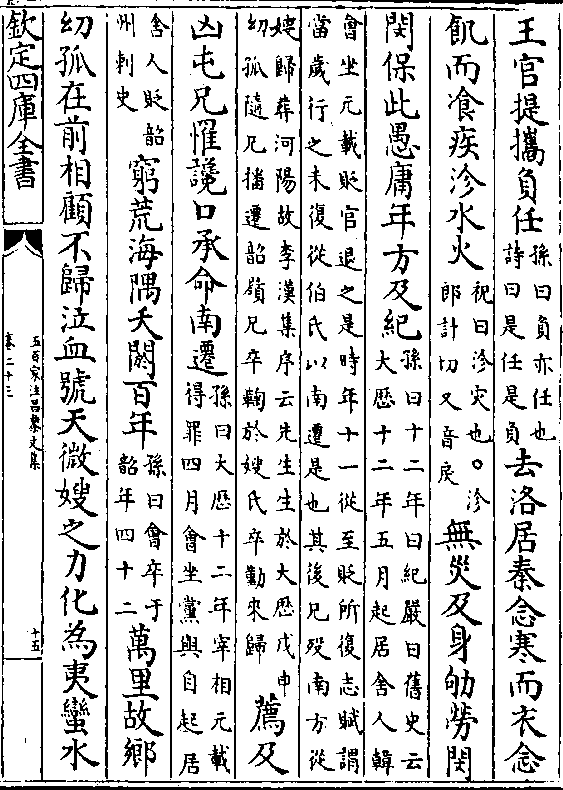 王官提攜負任孫曰負亦任也
詩曰是任是負去洛居秦念寒而衣念
飢而飡疾沴水火祝曰沴灾也。沴
郎計切又音戾無災及身劬勞閔
閔保此愚庸年方及紀孫曰十二年曰紀嚴曰舊史云
大歴十二年五月起居舍人韓
會坐元載貶官退之是時年十一從至貶所復志賦謂
當歲行之未復從伯氏以南遷是也其後兄殁南方從
嫂歸葬河陽故李漢集序云先生生於大歴戊申
幼孤隨兄播遷韶嶺兄卒鞠於嫂氏卒勤來歸薦及
凶屯兄罹讒口承命南遷孫曰大歴十二年宰相元載
得罪四月會坐黨與自起居
舍人貶韶
州刺史窮荒海隅夭閼百年孫曰會卒于
韶年四十二萬里故鄉
幼孤在前相顧不歸泣血號天微嫂之力化為夷蠻水
欽定四庫全書
五百家注昌黎文集
卷二十三
十五